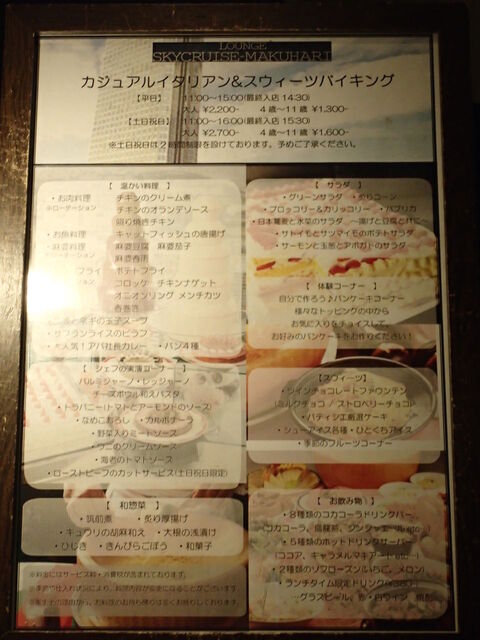 LOUNGE
SKYCRUISE-MAKUHARI
カジュアルイタリアン&スウィーツバイキング
【平日】 11:00~15:00(最終入店 14:30)
大人 ¥2,200- 4歳~11歳 ¥1,300-
【土日祝日】 11:00~16:00(最終入店 15:30)
大人 ¥2,700- 4歳~11歳 ¥1,600-
※土日祝日は2時間制限を設けております。予めご了承ください。
【 温かい料理 】
・お肉料理 チキンのクリーム煮
※ローテーション チキンのオランデソース
照り焼きチキン
・お魚料理 キャットフィッシュの唐揚げ
・麻婆料理 麻婆豆腐 麻婆茄子
麻婆春雨
フライ ポテトフライ
コロッケ チキンナゲット
オニオンリング メンチカツ
春巻き
ネギの玉子スープ
・サフランライスのピラフ
・大人気!アパ社長カレー ・パン4種
【 シェフの実演コーナー 】
パルミジャーノ・レッジャーノ
チーズボウル和えパスタ
・トラパニ―(トマトとアーモンドのソース)
・なめこおろし ・カルボナーラ
・野菜入りミートソース
・ウニのクリームソース
・海老のトマトソース
・ローストビーフのカットサービス(土日祝日限定)
【 和惣菜 】
・筑前煮 ・炙り厚揚げ
・キュウリの胡麻和え ・大根の浅漬け
・ひじき ・きんぴらごぼう ・和菓子
※料金にはサービス料・消費税が含まれております。
※季節や仕入れ状況により、料理内容が変更になることがございます。
※衛生上の理由から、お料理のお持ち帰りは固くお断りしております。
【 サラダ 】
・グリーンサラダ ・炙りコーン
・ブロッコリー&カリッコリー ・パプリカ
・日本蕎麦と水菜のサラダ ~揚げと豆腐と共に
・サトイモとサツマイモのポテトサラダ
・サーモンと玉葱とアボガドのサラダ
【 体験コーナー 】
自分で作ろう♪パンケーキコーナー
様々なトッピングの中から
お気に入りをチョイスして、
お好みのパンケーキをお作りください!
【スウィーツ】
・ツインチョコレートファウンテン
(ミルクチョコ / ストロベリーチョコ)
・パティシエ厳選ケーキ
・シューアイス各種 ・ひとくちアイス
・季節のフルーツコーナー
【 お飲み物 】
・8種類のコカコラドリンクバー
(コカコーラ、烏龍茶、ジンジャエール etc…)
・5種類のホットドリンクサーバー
(ココア、キャラメルマキアート etc…)
・2種類のソフローズン(いちご、メロン)
・ランチタイム限定ドリンク ¥380-
…グラスビール、赤・白ワイン 焼酎